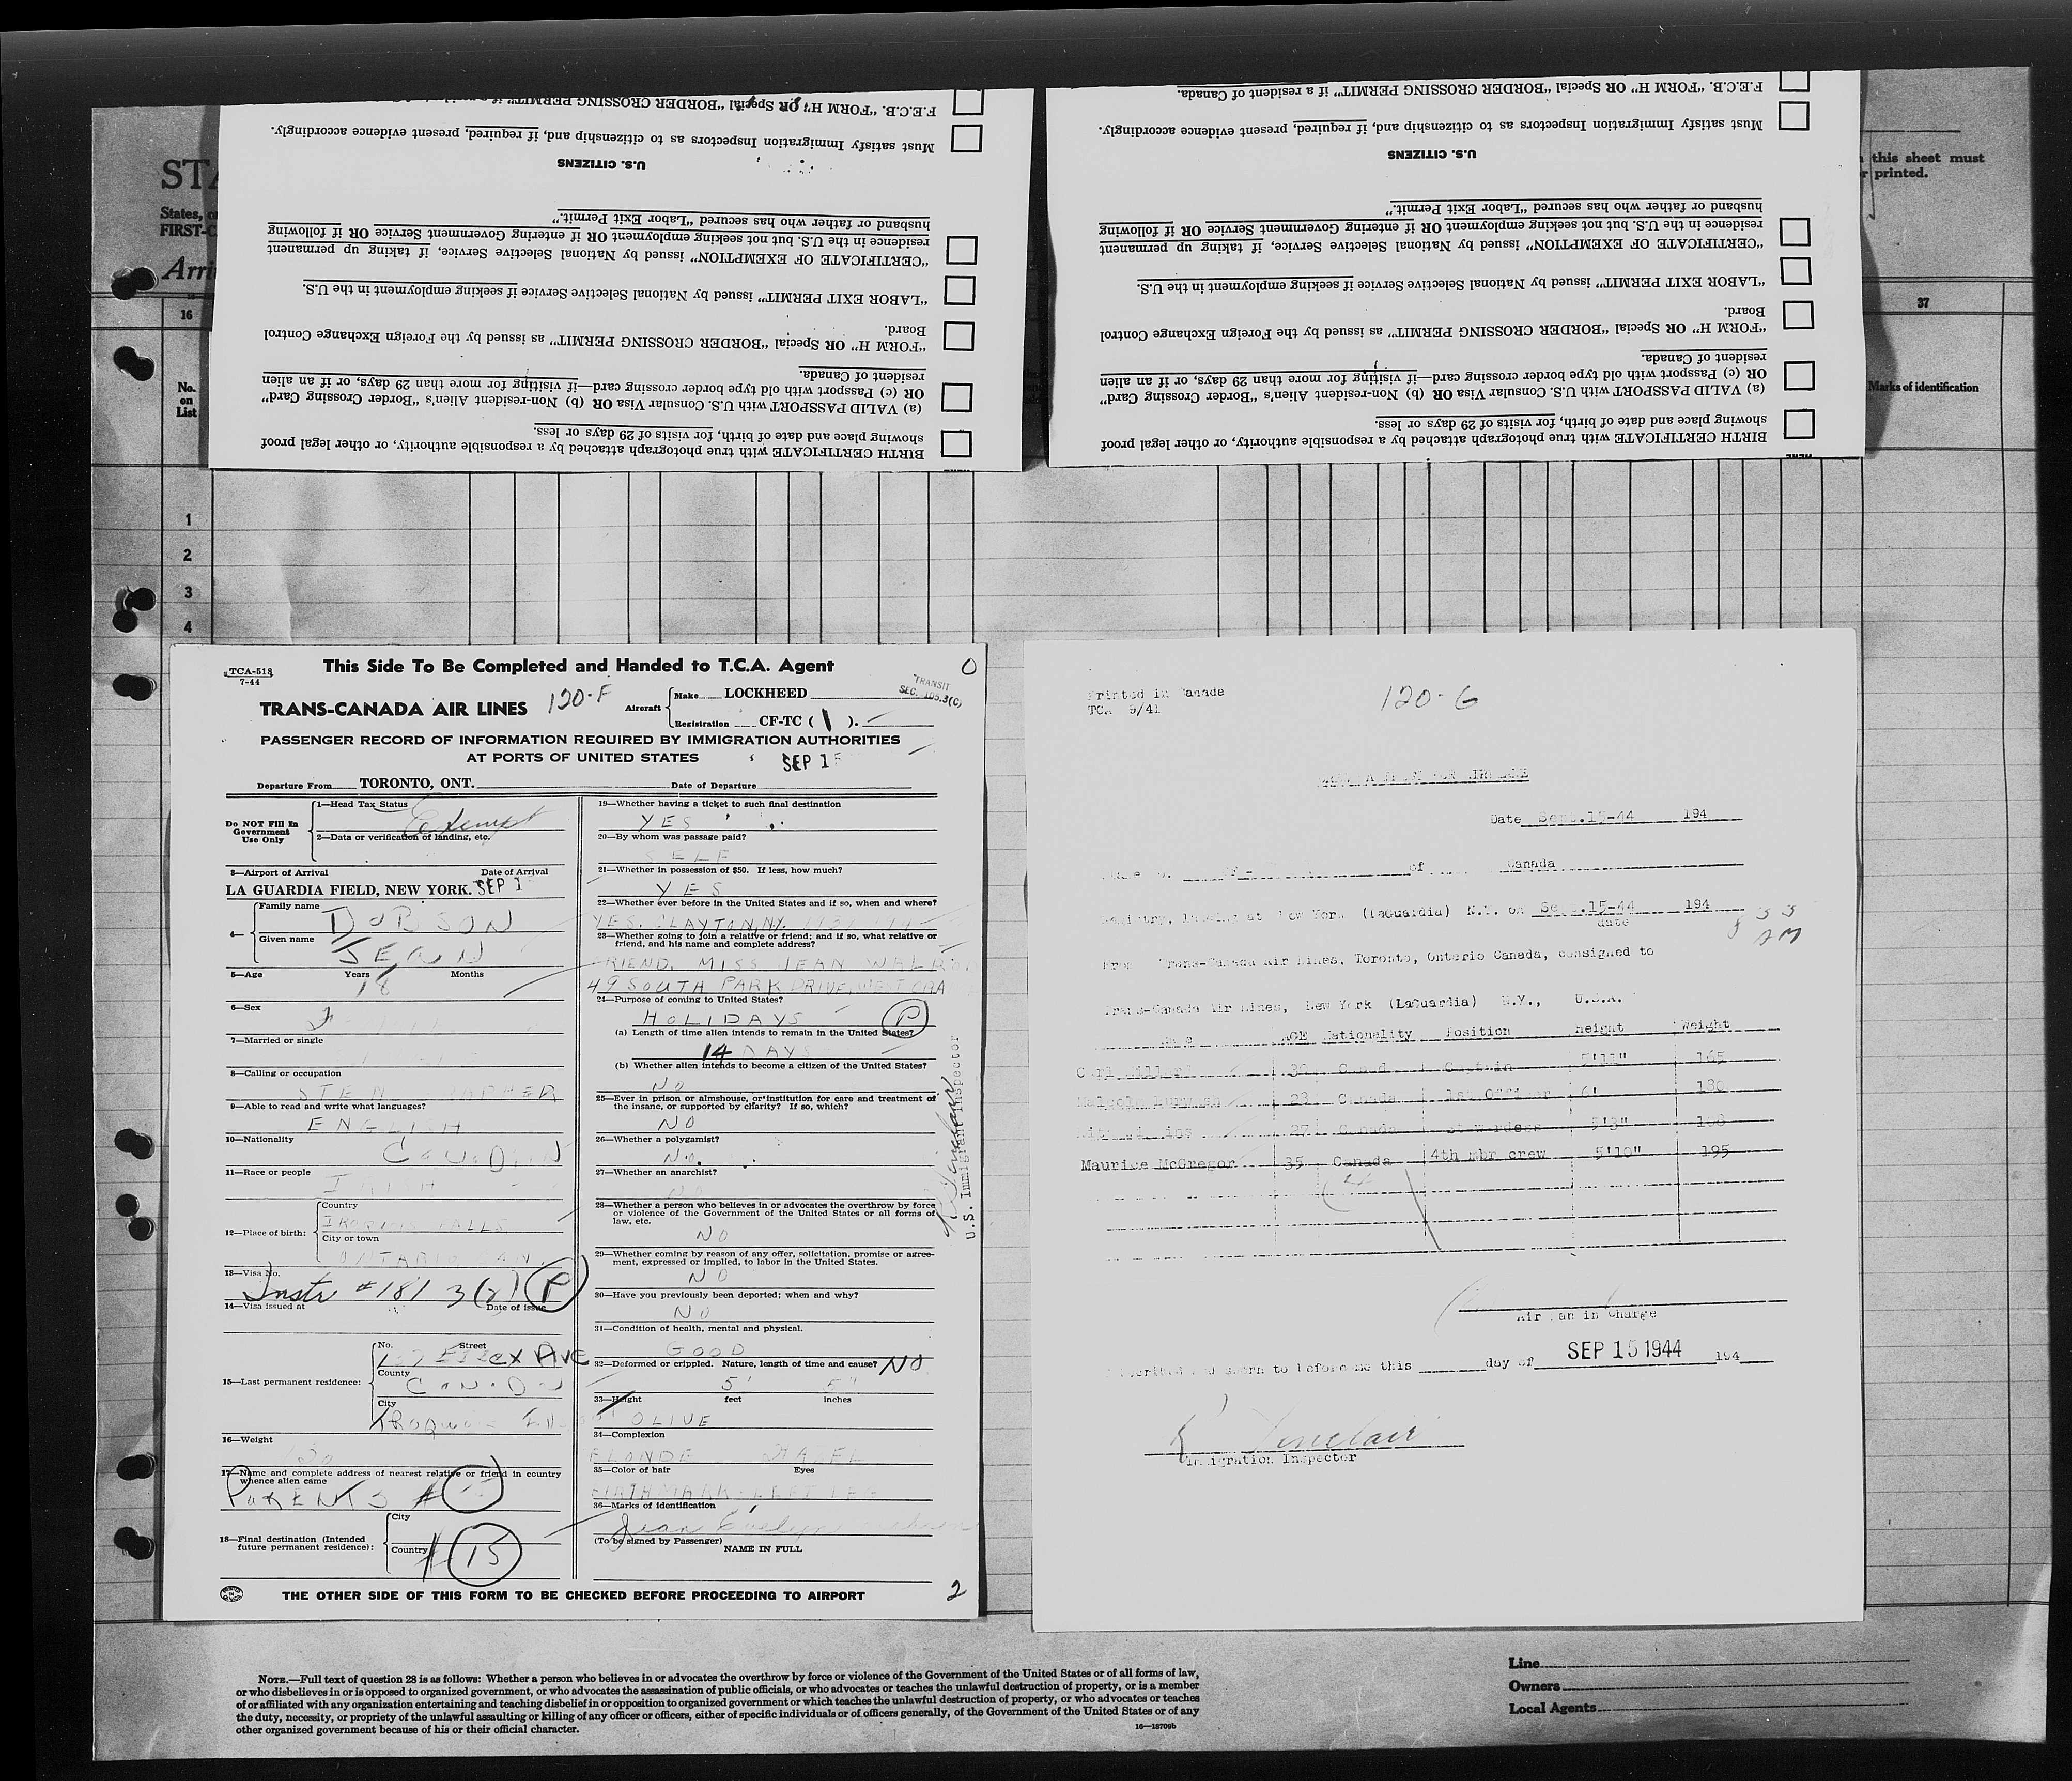 F.E.C.B. "FORM H" OR Special "BORDER CROSSING PERMIT"
Must satisfy Immigration Inspectors as to citizenship and, if required, present evidence accordingly.
U.S. CITIZENS
husband or father who has secured "Labor Exit Permit."
residence in the U.S. but not seeking employment OR if entering Government Service OR if following
"CERTIFICATE OF EXEMPTION" issued by National Selective Service, if taking up permanent
"LABOR EXIT PERMIT" issued by National Selective Service if seeking employment in the U.S.
Board.
"FORM H" OR Special "BORDER CROSSING PERMIT" as issued by the Foreign Exchange Control
resident of Canada.
OR (c) Passport with old type border crossing card—if visiting for more than 29 days, or if an alien
(a) VALID PASSPORT with U.S. Consular Visa OR (b) Non-resident Alien's "Border Crossing Card"
showing place and date of birth, for visits of 29 days or less.
BIRTH CERTIFICATE with true photograph attached by a responsible authority, or other legal proof
F.E.C.B. "FORM H" OR Special "BORDER CROSSING PERMIT" if a resident of Canada.
Must satisfy Immigration Inspectors as to citizenship and, if required, present evidence accordingly.
U.S. CITIZENS
husband or father who has secured "Labor Exit Permit."
residence in the U.S. but not seeking employment OR if entering Government Service OR if following
"CERTIFICATE OF EXEMPTION" issued by National Selective Service, if taking up permanent
"LABOR EXIT PERMIT" issued by National Selective Service if seeking employment in the U.S.
Board.
"FORM H" OR Special "BORDER CROSSING PERMIT" as issued by the Foreign Exchange Control
resident of Canada.
OR (c) Passport with old type border crossing card—if visiting for more than 29 days, or if an alien
(a) VALID PASSPORT with U.S. Consular Visa OR (b) Non-resident Alien's "Border Crossing Card"
showing place and date of birth, for visits of 29 days or less.
BIRTH CERTIFICATE with true photograph attached by a responsible authority, or other legal proof
HERE
STA
States, o
FIRST-C
Arri
this sheet must
r printed.
16
37
No.
on
List
Marks of identification
1
2
3
4
TCA-518
7-44
This Side To Be Completed and Handed to T.C.A. Agent
0
TRANS-CANADA AIR LINES 120-F
Aircraft
Make LOCKHEED
Registration CF-TC ( ).
TRANSIT
SEC. 105.3(C)
PASSENGER RECORD OF INFORMATION REQUIRED BY IMMIGRATION AUTHORITIES
AT PORTS OF UNITED STATES
SEP 15
Departure From TORONTO, ONT. Date of Departure
Do NOT Fill In
Government
Use Only
1—Head Tax Status
Exempt
2—Data or verification of landing, etc.
3—Airport of Arrival Date of Arrival
LA GUARDIA FIELD, NEW YORK. SEP 1
4—
Family name
DOBSON
Given name
JEAN
5—Age Years Months
18
6—Sex
7—Married or single
8—Calling or occupation
9—Able to read and write what languages?
ENGLISH
10—Nationality
CANADIAN
11—Race or people
IRISH
12—Place of birth:
Country
IROQUOIS FALLS
City or town
ONTARIO CAN.
13—Visa No.
Instr #181 3(2) P
14—Visa issued at Date of issue
15—Last permanent residence:
No. Street
Essex Ave
County
CANADA
City
Iroquois
16—Weight
17—Name and complete address of nearest relative or friend in country
whence alien came
PARENTS #
18—Final destination (Intended
future permanent residence):
City
Country
# 15
19—Whether having a ticket to such final destination
YES
20—By whom was passage paid?
SELF
21—Whether in possession of $50. If less, how much?
YES
22—Whether ever before in the United States and if so, when and where?
YES. CLAYTON, N.Y.
23—Whether going to join a relative or friend; and if so, what relative or
friend, and his name and complete address?
FRIEND. MISS JEAN
49 SOUTH PARK DRIVE, WEST ORA
24—Purpose of coming to United States?
HOLIDAYS P
(a) Length of time alien intends to remain in the United States?
14 DAYS
(b) Whether alien intends to become a citizen of the United States?
NO
25—Ever in prison or almshouse, or institution for care and treatment of
the insane, or supported by charity? If so, which?
NO
26—Whether a polygamist?
No.
27—Whether an anarchist?
NO
28—Whether a person who believes in or advocates the overthrow by force
or violence of the Government of the United States or all forms of
law, etc.
NO
29—Whether coming by reason of any offer, solicitation, promise or agree-
ment, expressed or implied, to labor in the United States.
NO
30—Have you previously been deported; when and why?
NO
31—Condition of health, mental and physical.
GOOD
32—Deformed or crippled. Nature, length of time and cause? NO
5' 5"
33—Height feet inches
OLIVE
34—Complexion
BLONDE HAZEL
35—Color of hair Eyes
BIRTHMARK - LEFT LEG
36—Marks of identification
Jean Evelyn
(To be signed by Passenger)
NAME IN FULL
U.S. Immigrant Inspector
THE OTHER SIDE OF THIS FORM TO BE CHECKED BEFORE PROCEEDING TO AIRPORT
2
Printed in Canada
TCA 5/41
120-G
Date Sept.15-44 194
of Canada
Registry, landing at New York (LaGuardia) N.Y. on Sept.15-44 194
date
8 33
AM
From Trans-Canada Air Lines, Toronto, Ontario Canada, consigned to
Trans-Canada Air Lines, New York (LaGuardia) N.Y., U.S.A.
Name AGE Nationality Position Height Weight
Carl Canad Captain 5'11" 165
Malcolm 28 Canada 1st Officer 6'
27 Canada Stewardess 5'3"
Maurice McGregor 35 Canada 4th mbr crew 5'10" 195
Airman in Charge
Subscribed and sworn to before me this day of SEP 15 1944 194
Sinclair
Immigration Inspector
NOTE.—Full text of question 28 is as follows: Whether a person who believes in or advocates the overthrow by force or violence of the Government of the United States or of all forms of law,
or who disbelieves in or is opposed to organized government, or who advocates the assassination of public officials, or who advocates or teaches the unlawful destruction of property, or is a member
of or affiliated with any organization entertaining and teaching disbelief in or opposition to organized government or which teaches the unlawful destruction of property, or who advocates or teaches
the duty, necessity, or propriety of the unlawful assaulting or killing of any officer or officers, either of specific individuals or of officers generally, of the Government of the United States or of any
other organized government because of his or their official character.
16—18709b
Line
Owners
Local Agents